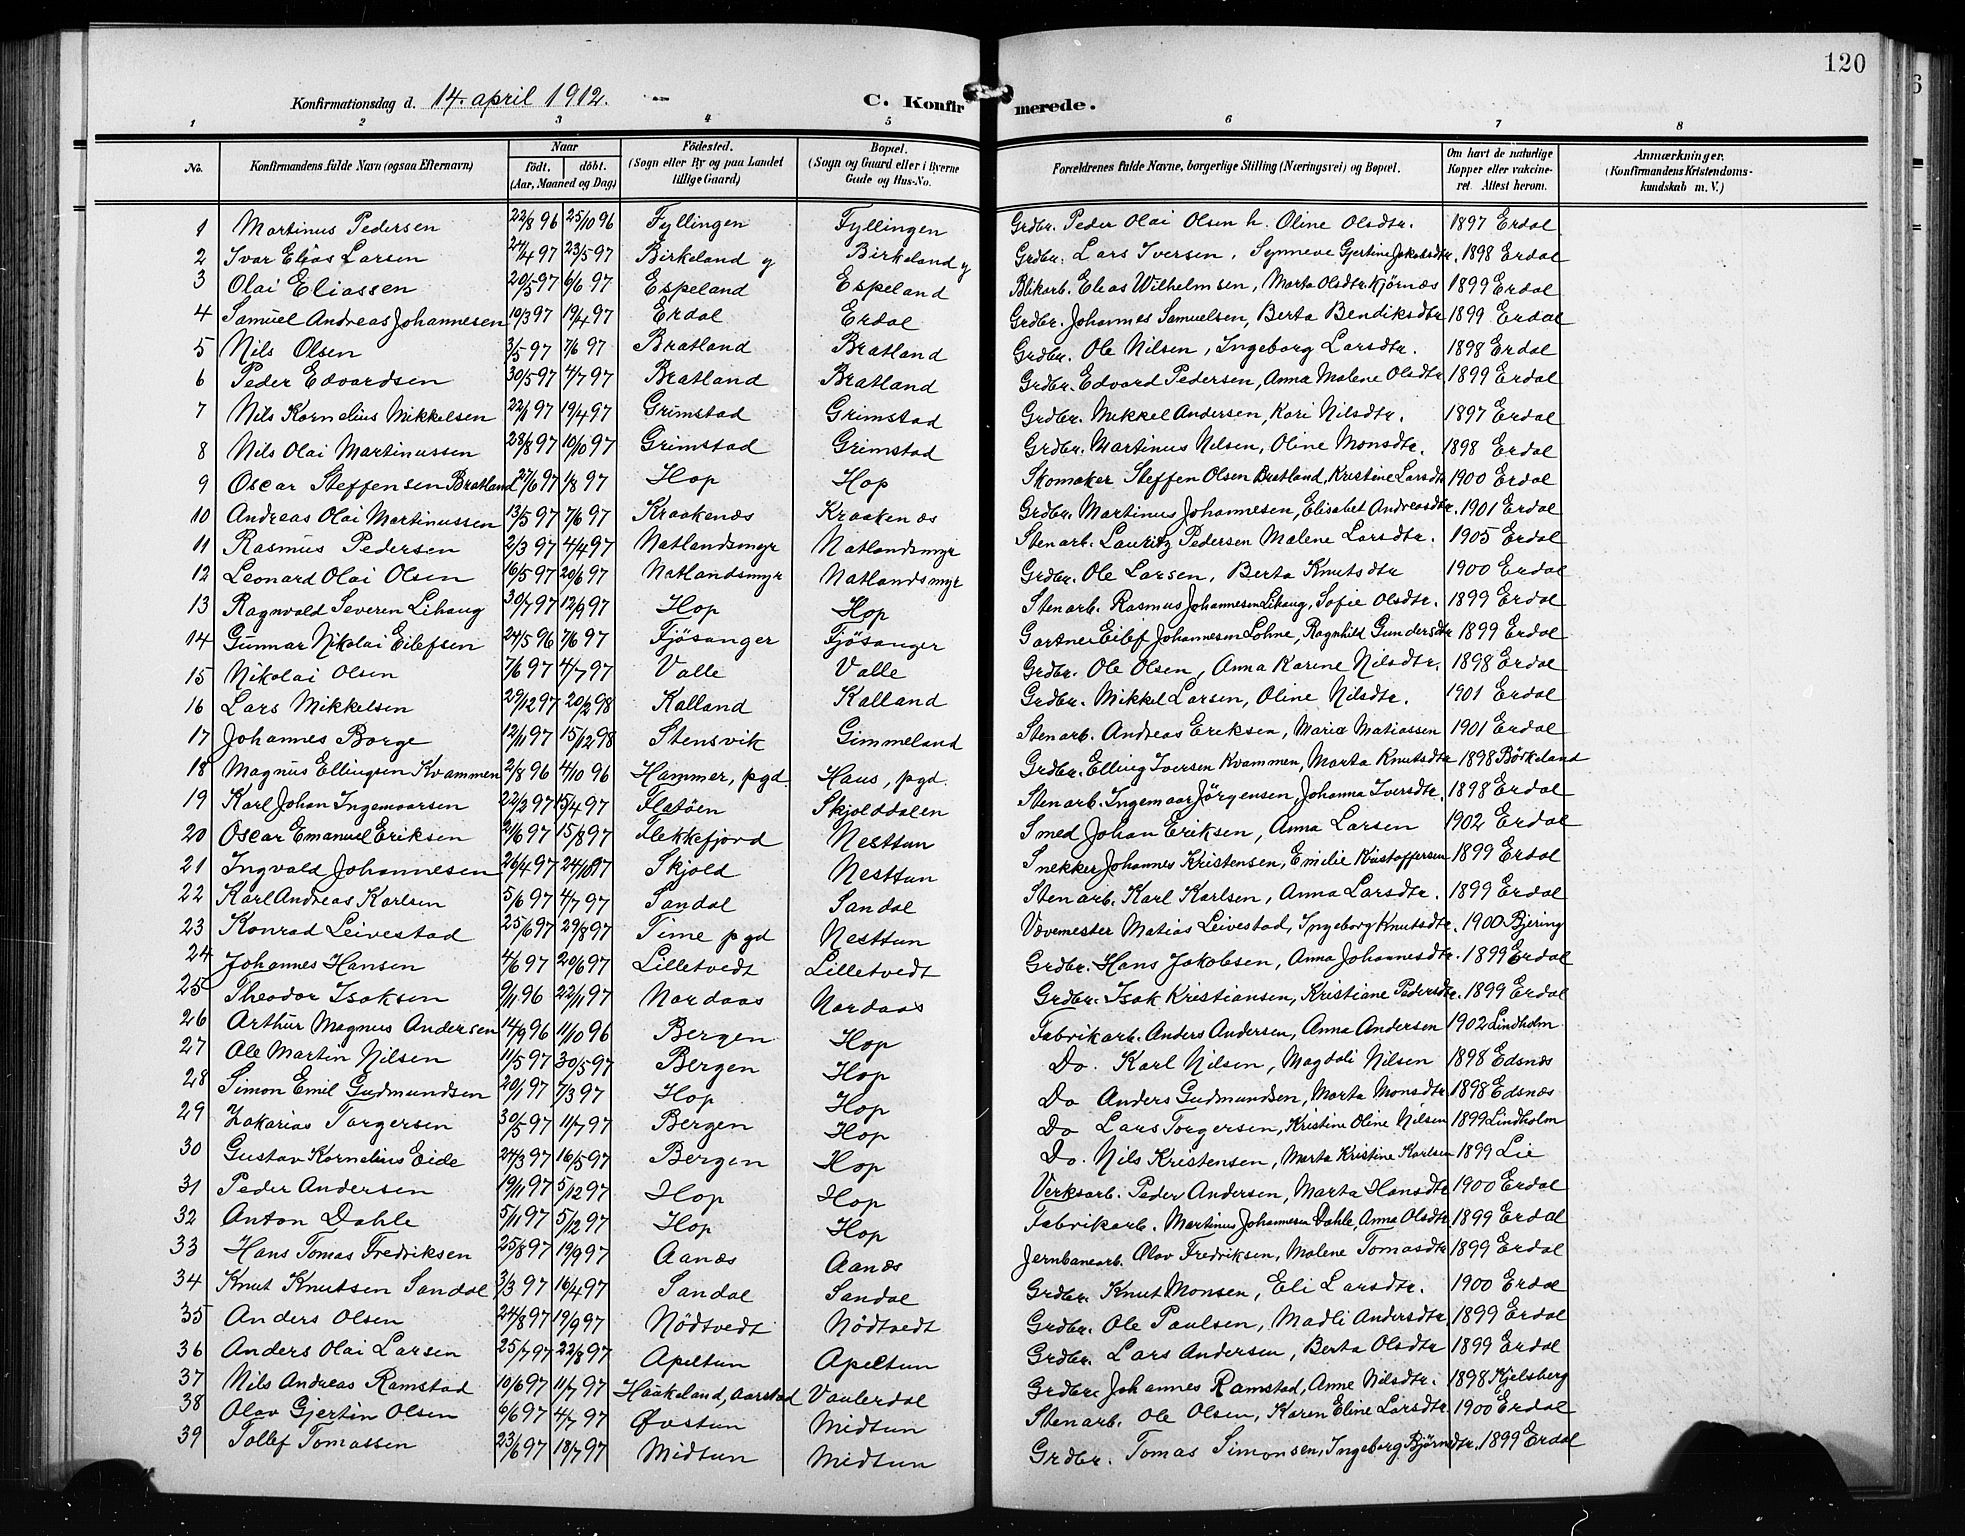 120
Konfirmationsdag d. 14. april 1912. C. Konfirmerede.
1 2 3 4 5 6 7 8
No. Konfirmandens fulde Navn (ogsaa Efternavn) Naar födt. döbt. (Aar, Maaned og Dag) Födested. (Sogn eller By og paa Landet tillige Gaard) Bopæl. (Sogn og Gaard eller i Byerne Gade og Hus-No. Forældrenes fulde Navne, borgerlige Stilling (Næringsvei) og Bopæl. Om havt de naturlige Kopper eller vakcineret. Attest herom. Anmærkninger. (Konfirmandens Kristendomskundskab m. V.)
1 Martinus Pedersen 22/8 96 25/10 96 Fyllingen Fyllingen Grdbr. Peder Olai Olsen h. Oline Olsdtr. 1897 Erdal
2 Ivar Elias Larsen 27/4 97 23/5 97 Birkeland y Birkeland y Grdbr. Lars Iversen, Synneve Gjertine Jakobsdtr. 1898 Erdal
3 Olai Eliassen 20/5 97 6/6 97 Espeland Espeland Blikarb. Elias Wilhelmsen, Marta Olsdtr. Kjörnæs 1899 Erdal
4 Samuel Andreas Johannesen 10/3 97 19/4 97 Erdal Erdal Grdbr. Johannes Samuelsen, Berta Bendiksdtr 1899 Erdal
5 Nils Olsen 3/5 97 7/6 97 Bratland Bratland Grdbr. Ole Nilsen, Ingeborg Larsdtr. 1898 Erdal
6 Peder Edvardsen 30/5 97 4/7 97 Bratland Bratland Grdbr. Edvard Pedersen, Anna Malene Olsdtr 1899 Erdal
7 Nils Kornelius Mikkelsen 22/1 97 19/4 97 Grimstad Grimstad Grdbr. Mikkel Andersen, Kari Nilsdtr. 1897 Erdal
8 Nils Olai Martinussen 28/8 97 10/10 97 Grimstad Grimstad Grdbr. Martinus Nilsen, Oline Monsdtr. 1898 Erdal
9 Oscar Steffensen Bratland 27/6 97 1/8 97 Hop Hop Skomaker Steffen Olsen Bratland, Kristine Larsdtr 1900 Erdal
10 Andreas Olai Martinussen 13/5 97 7/6 97 Kraakenæs Kraakenæs Grdbr. Martinus Johannesen, Elisabet Andreasdtr. 1901 Erdal
11 Rasmus Pedersen 2/3 97 4/4 97 Natlandsmyr Natlandsmyr Stenarb. Lauritz Pedersen Malene Larsdtr. 1905 Erdal
12 Leonard Olai Olsen 16/5 97 20/6 97 Natlandsmyr Natlandsmyr Grdbr. Ole Larsen, Berta Knutsdtr 1900 Erdal
13 Ragnvald Severen Lihaug 30/7 97 12/9 97 Hop Hop Stenarb. Rasmus Johannesen Lihaug, Sofie Olsdtr. 1899 Erdal
14 Gunnar Nikolai Eilefsen 24/5 96 7/6 97 Fjösanger Fjösanger Gartner Eilef Johannesen Lohne, Ragnhild Gundersdtr 1899 Erdal
15 Nikolai Olsen 7/6 97 4/7 97 Valle Valle Grdbr. Ole Olsen, Anna Karine Nilsdtr. 1898 Erdal
16 Lars Mikkelsen 29/12 97 20/2 98 Kalland Kalland Grdbr. Mikkel Larsen, Oline Nilsdtr. 1901 Erdal
17 Johannes Borge 12/11 97 15/12 98 Stensvik Gimmeland Stenarb. Andreas Eriksen, Maria Matiassen 1901 Erdal
18 Magnus Ellingsen Kvammen 2/8 96 4/10 96 Hammer, pgd. Haus, pgd. Grdbr. Elling Iversen Kvammen, Marta Knutsdtr 1898 Börkeland
19 Karl Johan Ingemaarsen 22/2 97 15/4 97 Fletöen Skjolddalen Stenarb. Ingemaar Jörgensen, Johanna Iversdtr. 1898 Erdal
20 Oscar Emanuel Eriksen 21/6 97 15/8 97 Flekkefjord Nesttun Smed Johan Eriksen, Anna Larsen 1902 Erdal
21 Ingvald Johannesen 26/4 97 24/10 97 Skjold Nesttun Snekker Johannes Kristensen, Emilie Kristoffersen 1899 Erdal
22 Karl Andreas Karlsen 5/6 97 4/7 97 Sandal Sandal Stenarb. Karl Karlsen, Anna Larsdtr. 1899 Erdal
23 Konrad Leivestad 25/6 97 29/8 97 Time pgd Nesttun Vævemester Matias Leivestad, Ingeborg Knutsdtr. 1900 Bjering
24 Johannes Hansen 4/6 97 20/6 97 Lilletvedt Lilletvedt Grdbr. Hans Jakobsen, Anna Johannesdtr. 1899 Erdal
25 Theodor Isaksen 9/11 96 22/11 97 Nordaas Nordaas Grdbr. Isak Kristiansen, Kristiane Pedersdtr. 1899 Erdal
26 Arthur Magnus Andersen 14/9 96 11/10 96 Bergen Hop Fabrikarb. Anders Andersen, Anna Andersen 1902 Lindholm
27 Ole Martin Nilsen 11/5 97 30/5 97 Bergen Hop Do. Karl Nilsen, Magdali Nilsen 1898 Edsnæs
28 Simon Emil Gudmundsen 20/1 97 7/3 97 Hop Hop Do Anders Gudmundsen, Marta Monsdtr 1898 Edsnæs
29 Zakarias Torgersen 30/5 97 11/7 97 Bergen Hop Do Lars Torgersen, Kristine Oline Nilsen 1899 Lindholm
30 Gustav Kornelius Eide 24/3 97 16/5 97 Bergen Hop Do. Nils Kristensen, Marta Kristine Karlsen 1899 Lie
31 Peder Andersen 19/11 97 5/12 97 Hop Hop Verksarb. Peder Andersen, Marta Hansdtr 1900 Erdal
32 Anton Dahle 5/11 97 5/12 97 Hop Hop Fabrikarb. Martinus Johannesen Dahle, Anna Olsdtr 1899 Erdal
33 Hans Tomas Fredriksen 25/8 97 19/9 97 Aanæs Aanæs Jernbanearb. Olav Fredriksen, Malene Tomasdtr 1899 Erdal
34 Knut Knutsen Sandal 3/3 97 16/4 97 Sandal Sandal Grdbr. Knut Monsen, Eli Larsdtr. 1900 Erdal
35 Anders Olsen 24/8 97 19/9 97 Nödtvedt Nödtvedt Grdbr. Ole Paulsen, Madli Andersdtr. 1899 Erdal
36 Anders Olai Larsen 25/7 97 22/8 97 Apeltun Apeltun Grdbr. Lars Andersen, Berta Olsdtr 1899 Erdal
37 Nils Andreas Ramstad 10/6 97 11/7 97 Haakeland, Aarstad Vaulerdal Grdbr. Johannes Ramstad, Anne Nilsdtr. 1898 Kjelsberg
38 Olav Gjertin Olsen 6/6 97 4/7 97 Øvstun Midtun Stenarb. Ole Olsen, Karen Eline Larsdtr. 1900 Erdal
39 Tollef Tomassen 23/6 97 18/7 97 Midtun Midtun Grdbr. Tomas Simonsen, Ingeborg Bjørnsdtr. 1899 Erdal